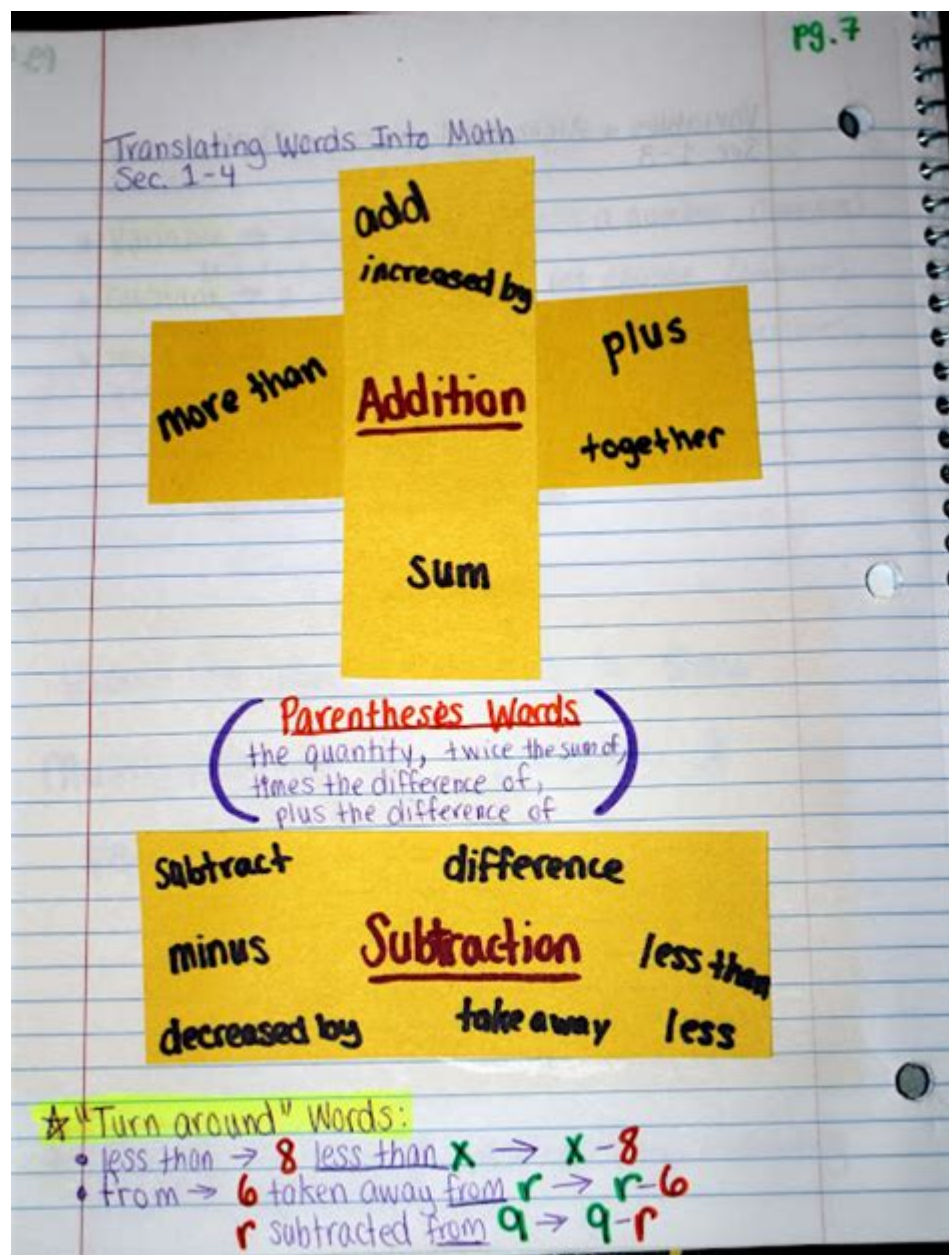 pg. 7
Translating Words Into Math
Sec. 1-4
add
increased by
more than
Addition
plus
together
sum
Parentheses Words
the quantity, twice the sum of,
times the difference of,
plus the difference of
subtract difference
minus Subtraction less than
decreased by take away less
☆ "Turn around" Words:
• less than → 8 less than x → x-8
• from → 6 taken away from r → r-6
r subtracted from 9 → 9-r